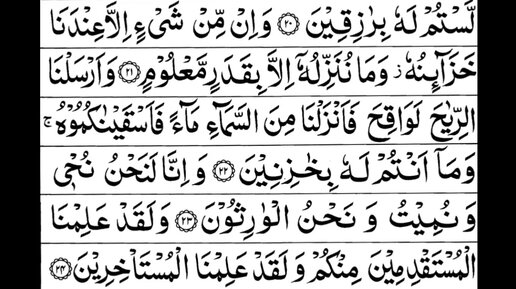 لَّسْتُمْ لَهٗ بِرٰزِقِيْنَ ۝۲۰ وَاِنْ مِّنْ شَىْءٍ اِلَّا عِنْدَنَا
خَزَآئِنُهٗ ز وَمَا نُنَزِّلُهٗٓ اِلَّا بِقَدَرٍ مَّعْلُوْمٍ ۝۲۱ وَاَرْسَلْنَا
الرِّيٰحَ لَوَاقِحَ فَاَنْزَلْنَا مِنَ السَّمَآءِ مَآءً فَاَسْقَيْنٰكُمُوْهُ ۚ
وَمَآ اَنْتُمْ لَهٗ بِخٰزِنِيْنَ ۝۲۲ وَاِنَّا لَنَحْنُ نُحْىٖ
وَنُمِيْتُ وَنَحْنُ الْوٰرِثُوْنَ ۝۲۳ وَلَقَدْ عَلِمْنَا
الْمُسْتَقْدِمِيْنَ مِنْكُمْ وَلَقَدْ عَلِمْنَا الْمُسْتَاْخِرِيْنَ ۝۲۴